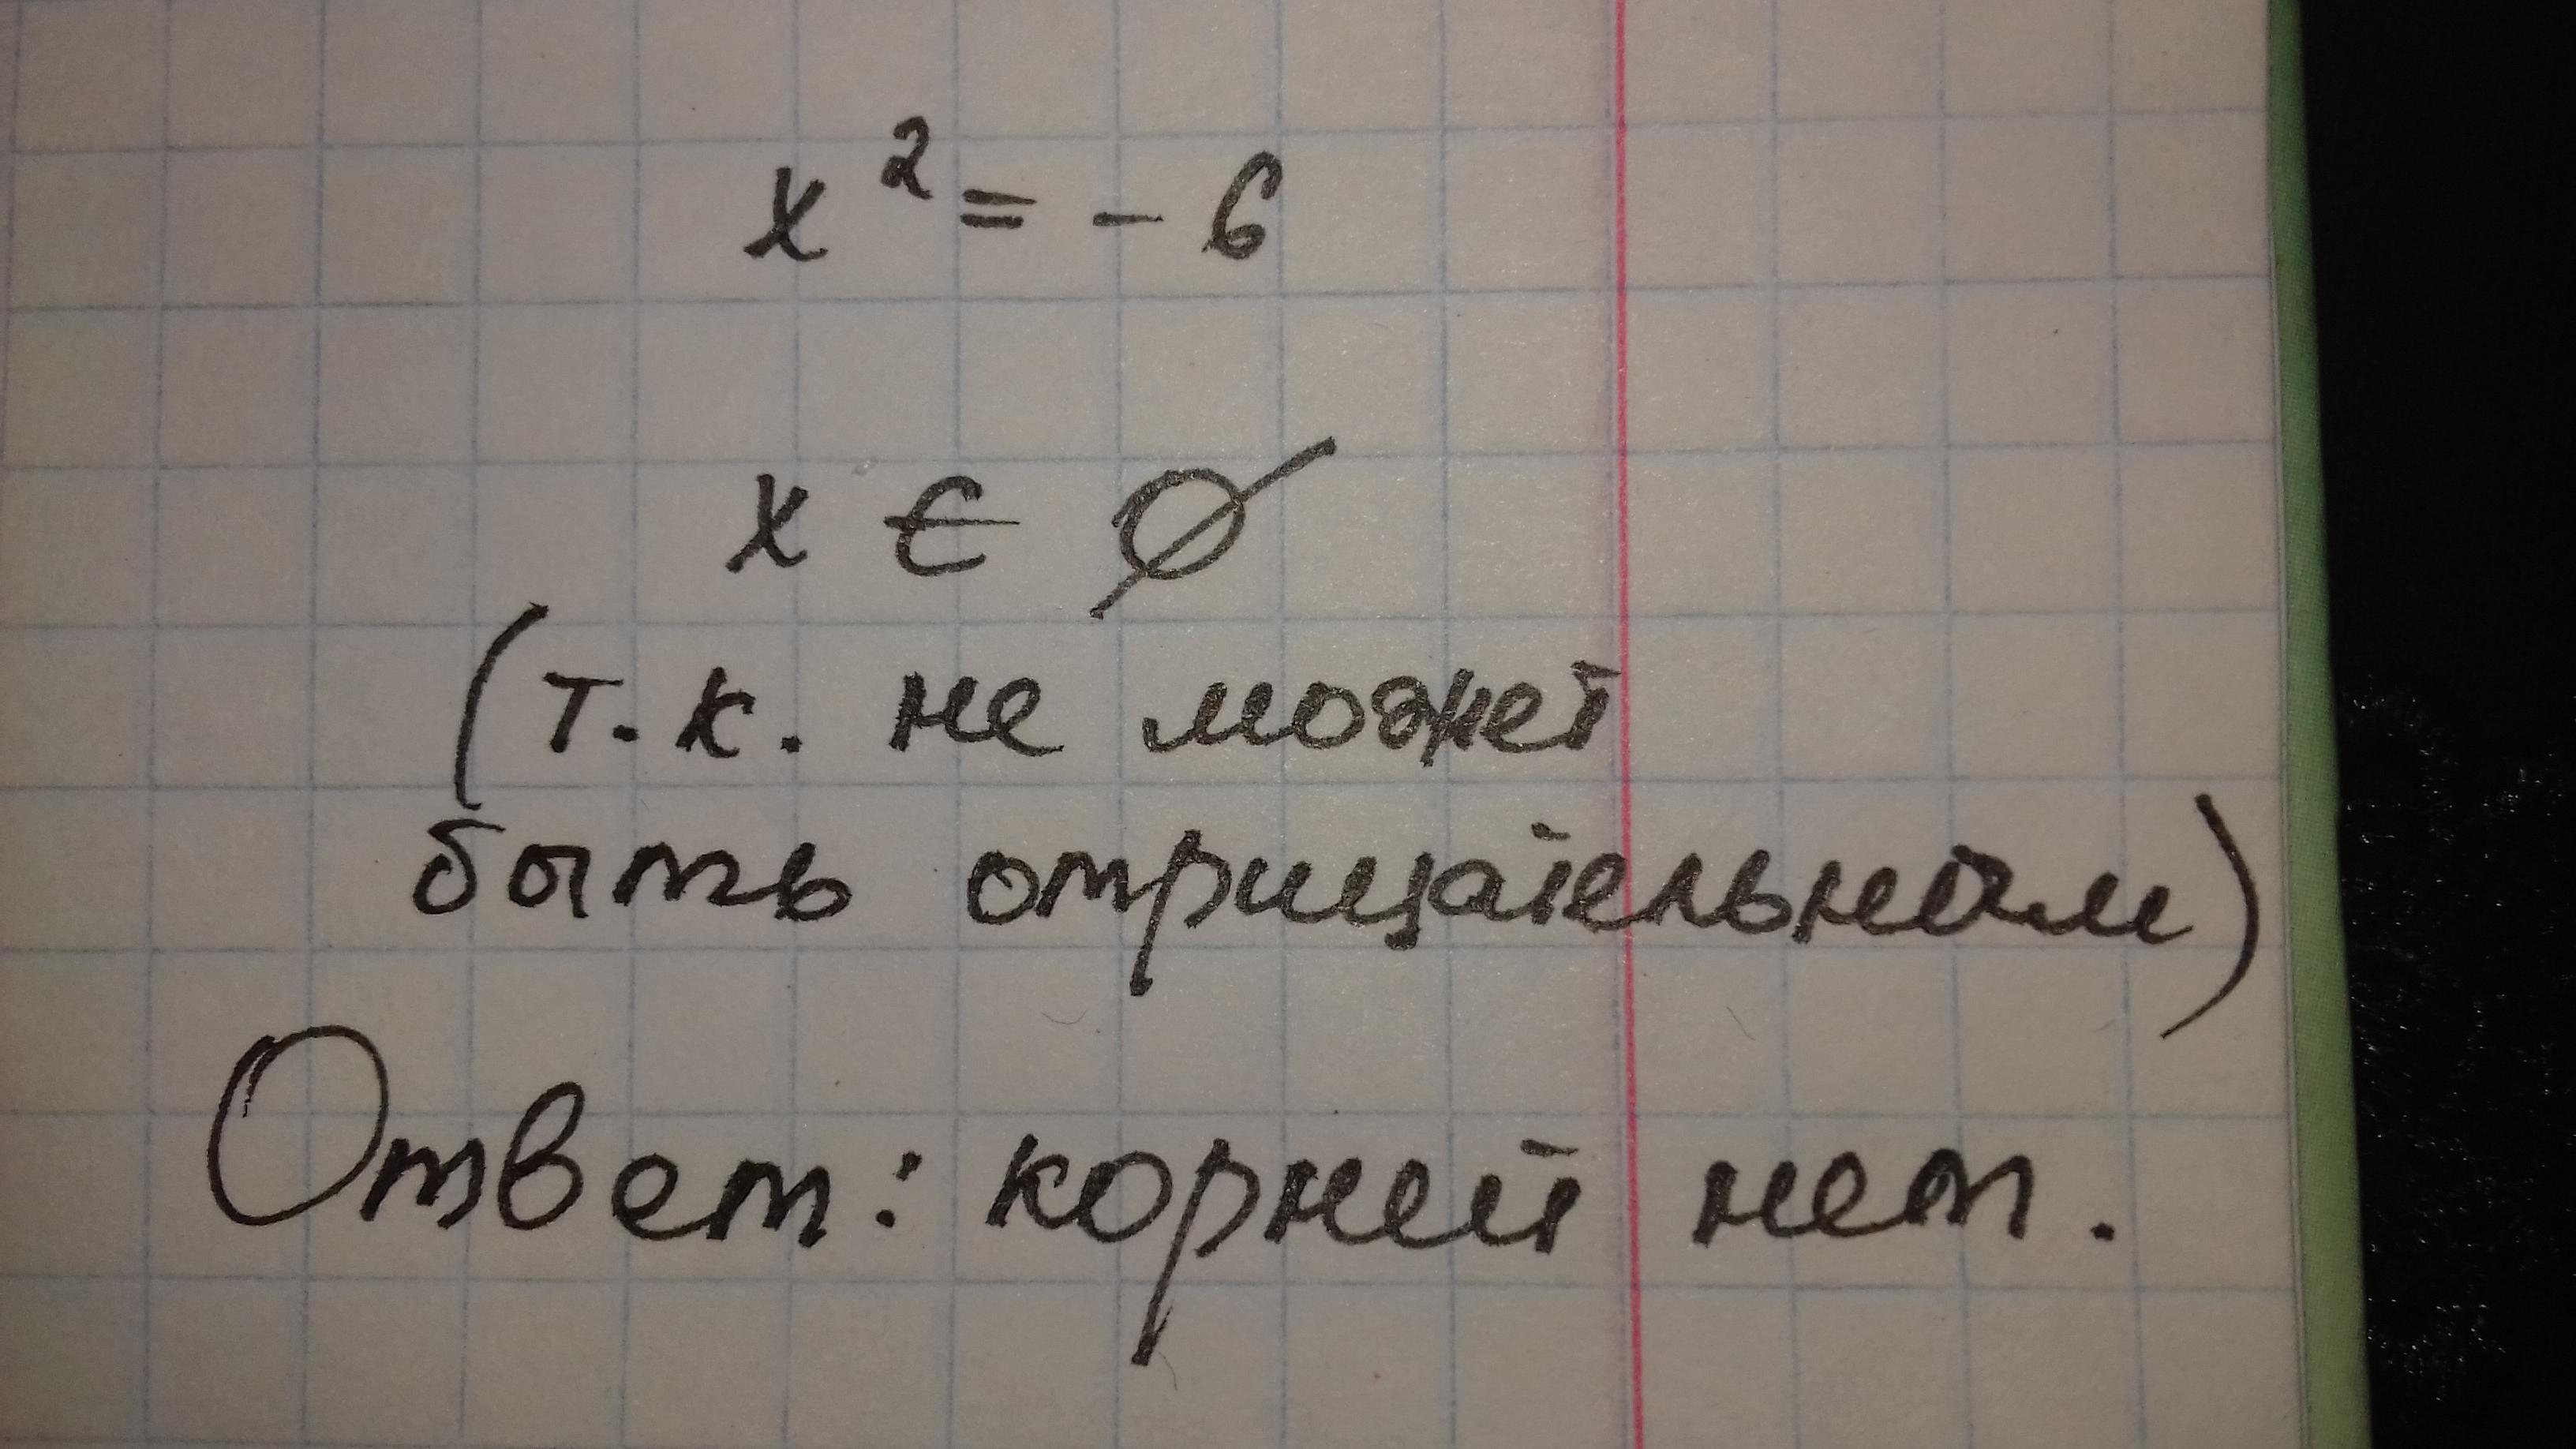 x² = - 6
x ∈ ∅
(т.к. не может
быть отрицательным)
Ответ: корней нет.